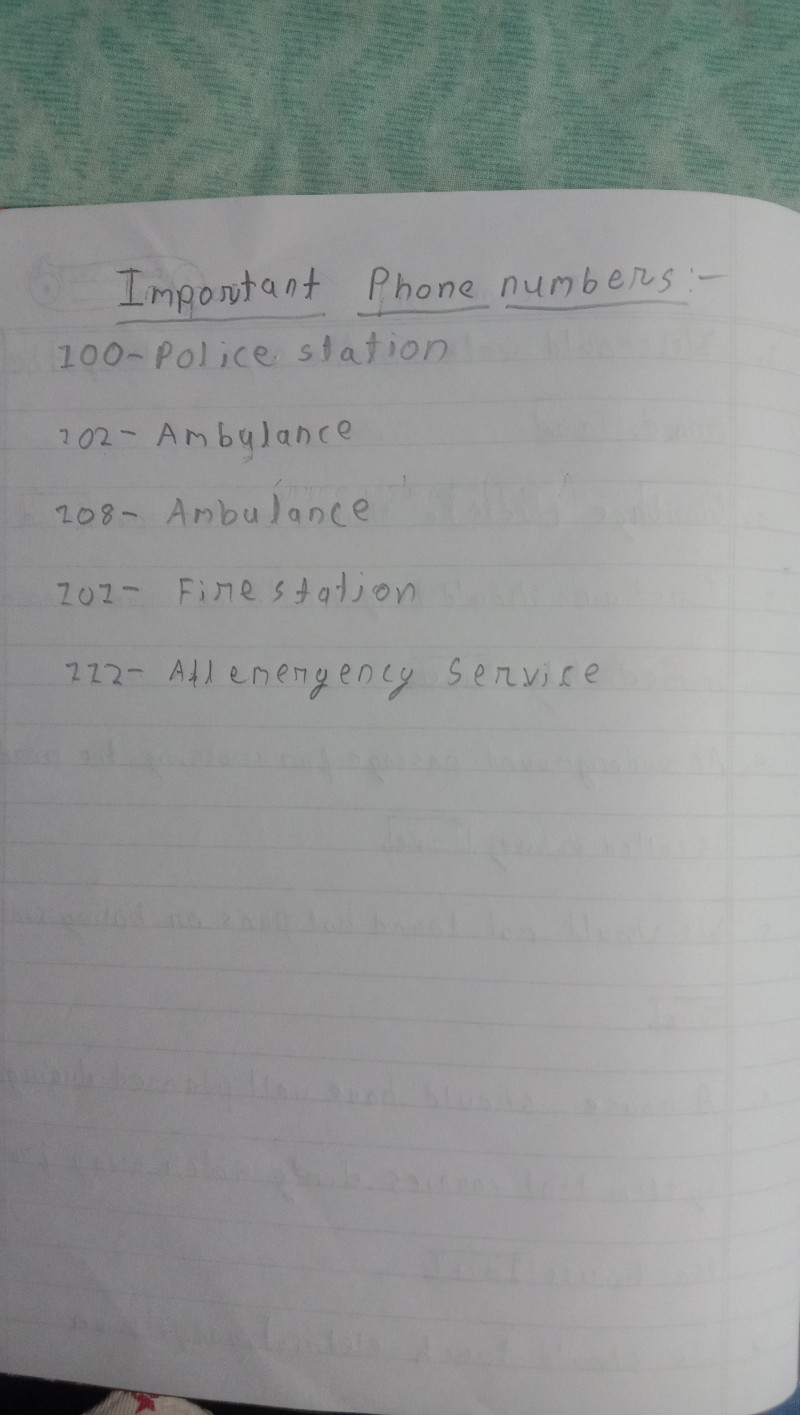 Important Phone numbers:-
100- Police station
102- Ambulance
108- Ambulance
101- Fire station
112- All emergency service